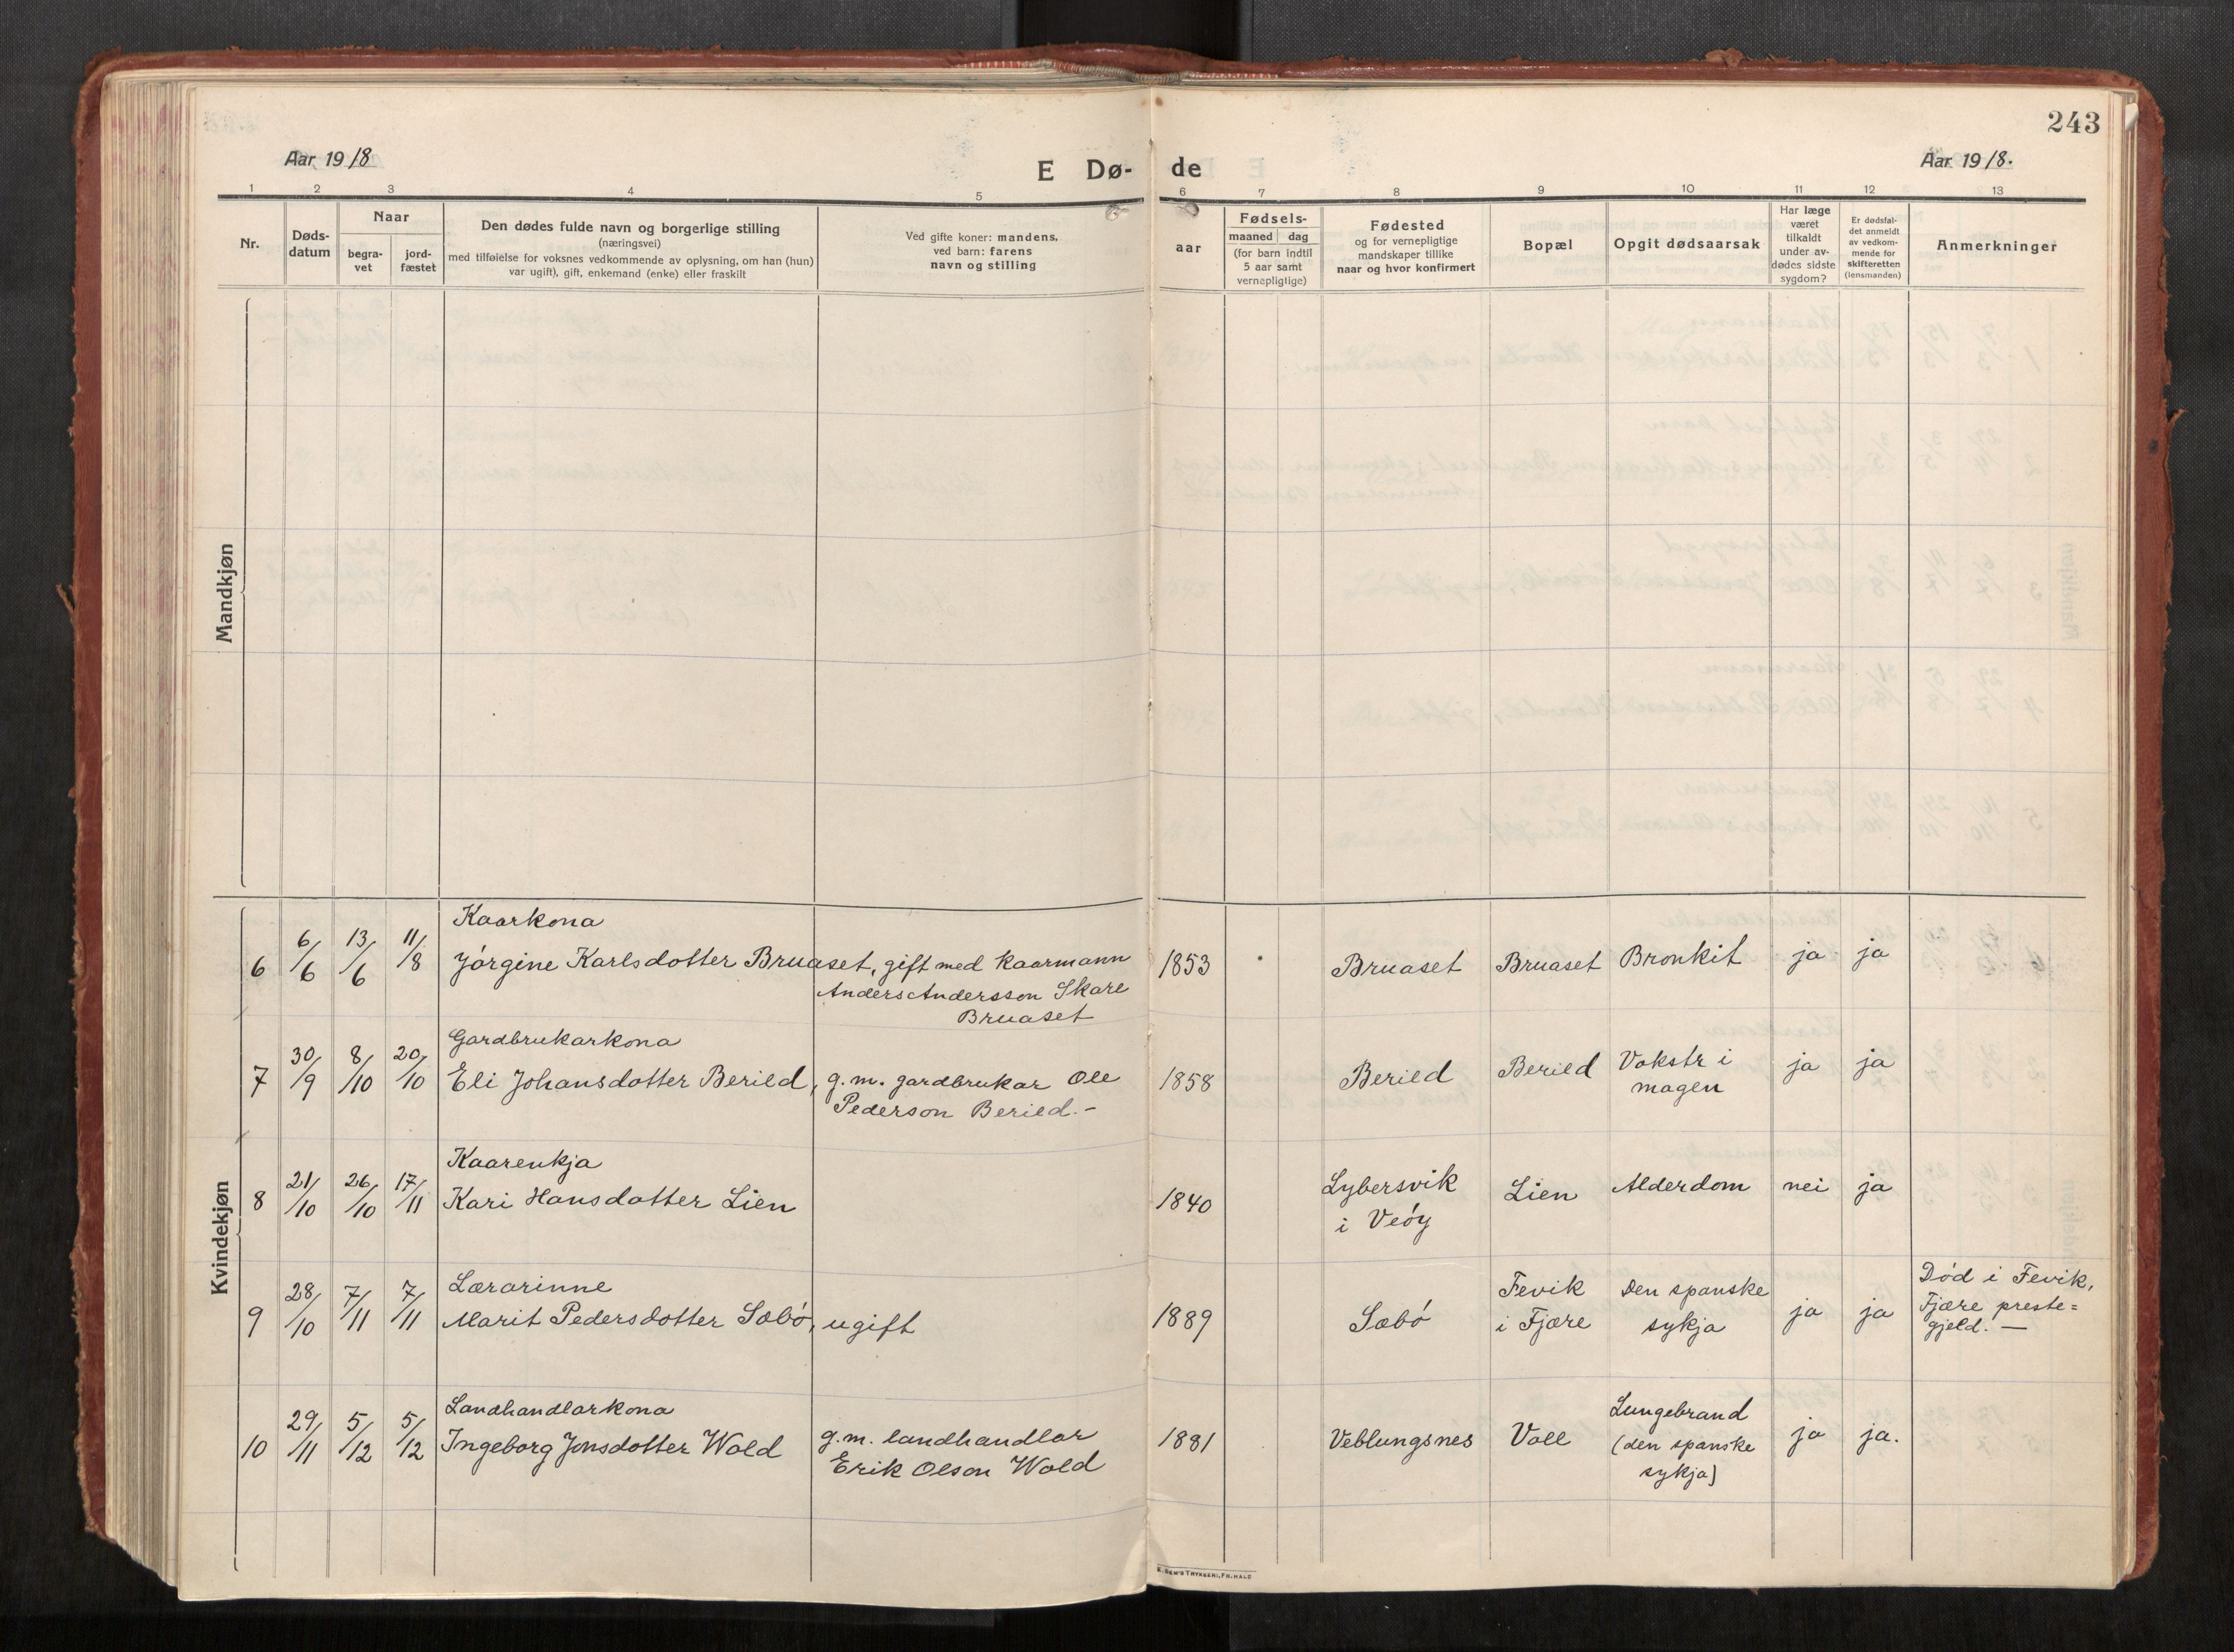 243
Aar 1918
E Dø-
de
Aar 1918.
1 2 3 4 5 6 7 8 9 10 11 12 13
Nr.
Døds-
datum
Naar
begra-
vet
jord-
fæstet
Den dødes fulde navn og borgerlige stilling
(næringsvei)
med tilføielse for voksnes vedkommende av oplysning, om han (hun)
var ugift), gift, enkemand (enke) eller fraskilt
Ved gifte koner: mandens,
ved barn: farens
navn og stilling
aar
Fødsels-
maaned dag
(for barn indtil
5 aar samt
vernepligtige)
Fødested
og for vernepligtige
mandskaper tillike
naar og hvor konfirmert
Bopæl
Opgit dødsaarsak
Har læge
været
tilkaldt
under av-
dødes sidste
sygdom?
Er dødsfal-
det anmeldt
av vedkom-
mende for
skifteretten
(lensmanden)
Anmerkninger
Mandkjøn
Kvindekjøn
Kaarkona
6 6/6 13/6 11/8 Jørgine Karlsdotter Bruaset, gift med kaarmann 1853 Bruaset Bruaset Bronkit ja ja
Anders Andersson Skare
Bruaset
Gardbrukarkona
7 30/9 8/10 20/10 Eli Johansdotter Berild, g.m. gardbrukar Ole 1858 Berild Berild Vokstr i ja ja
Pederson Berild.- magen
Kaarenkja
8 21/10 26/10 17/11 Kari Hansdotter Lien 1840 Lybersvik Lien Alderdom nei ja
i Veøy
Lærarinne Fevik Den spanske Død i Fevik,
9 28/10 7/11 7/11 Marit Pedersdotter Sæbø, ugift 1889 Sæbø i Fjære sykja ja ja Fjære preste=
gjeld. —
Landhandlarkona Lungebrand
10 29/11 5/12 5/12 Ingeborg Jonsdotter Wold g.m. landhandlar 1881 Veblungsnes Voll (den spanske ja ja.
Erik Olson Wold sykja)
E. SEM'S TRYKKERI, FR.HALD